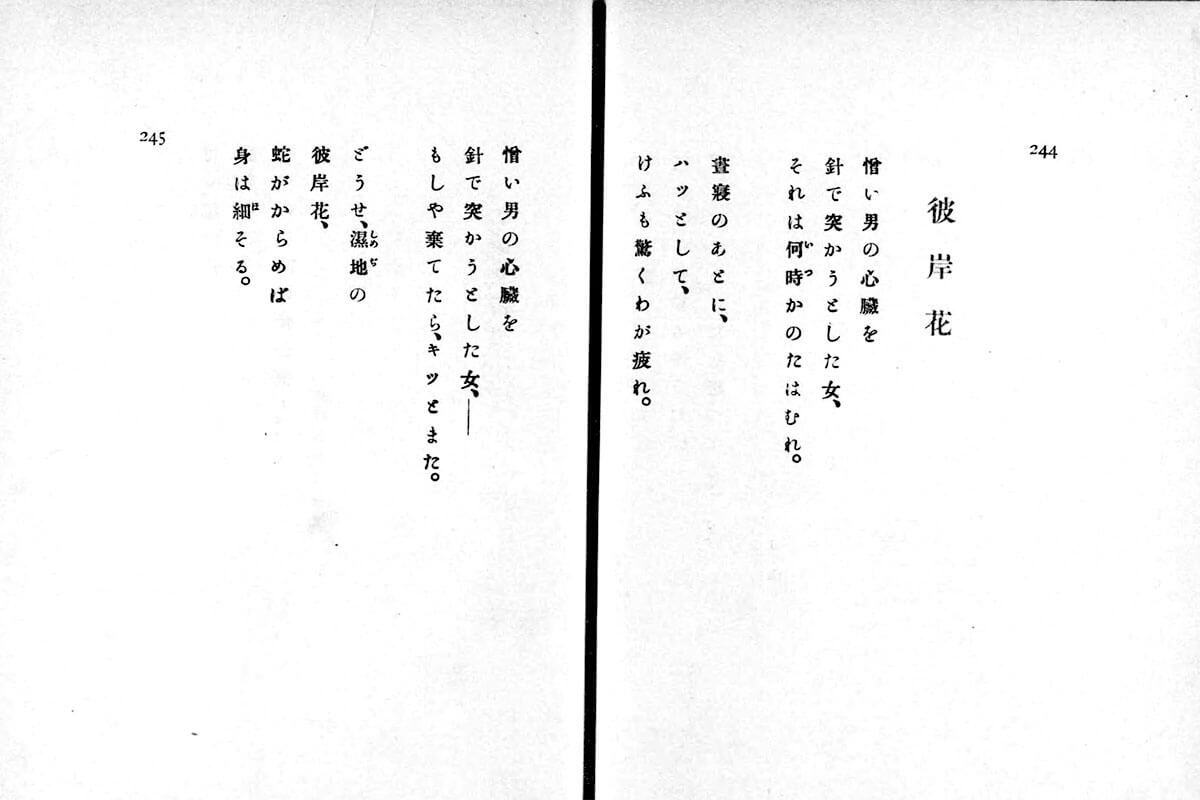 244
彼岸花
憎い男の心臓を
針で突かうとした女、
それは何時かのたはむれ。
いつ
晝寢のあとに、
ハッとして、
けふも驚くわが疲れ。
245
憎い男の心臓を
針で突かうとした女、――
もしや棄てたら、キツとまた。
どうせ、濕地の
しめぢ
彼岸花、
蛇がからめば
身は細そる。
ほ